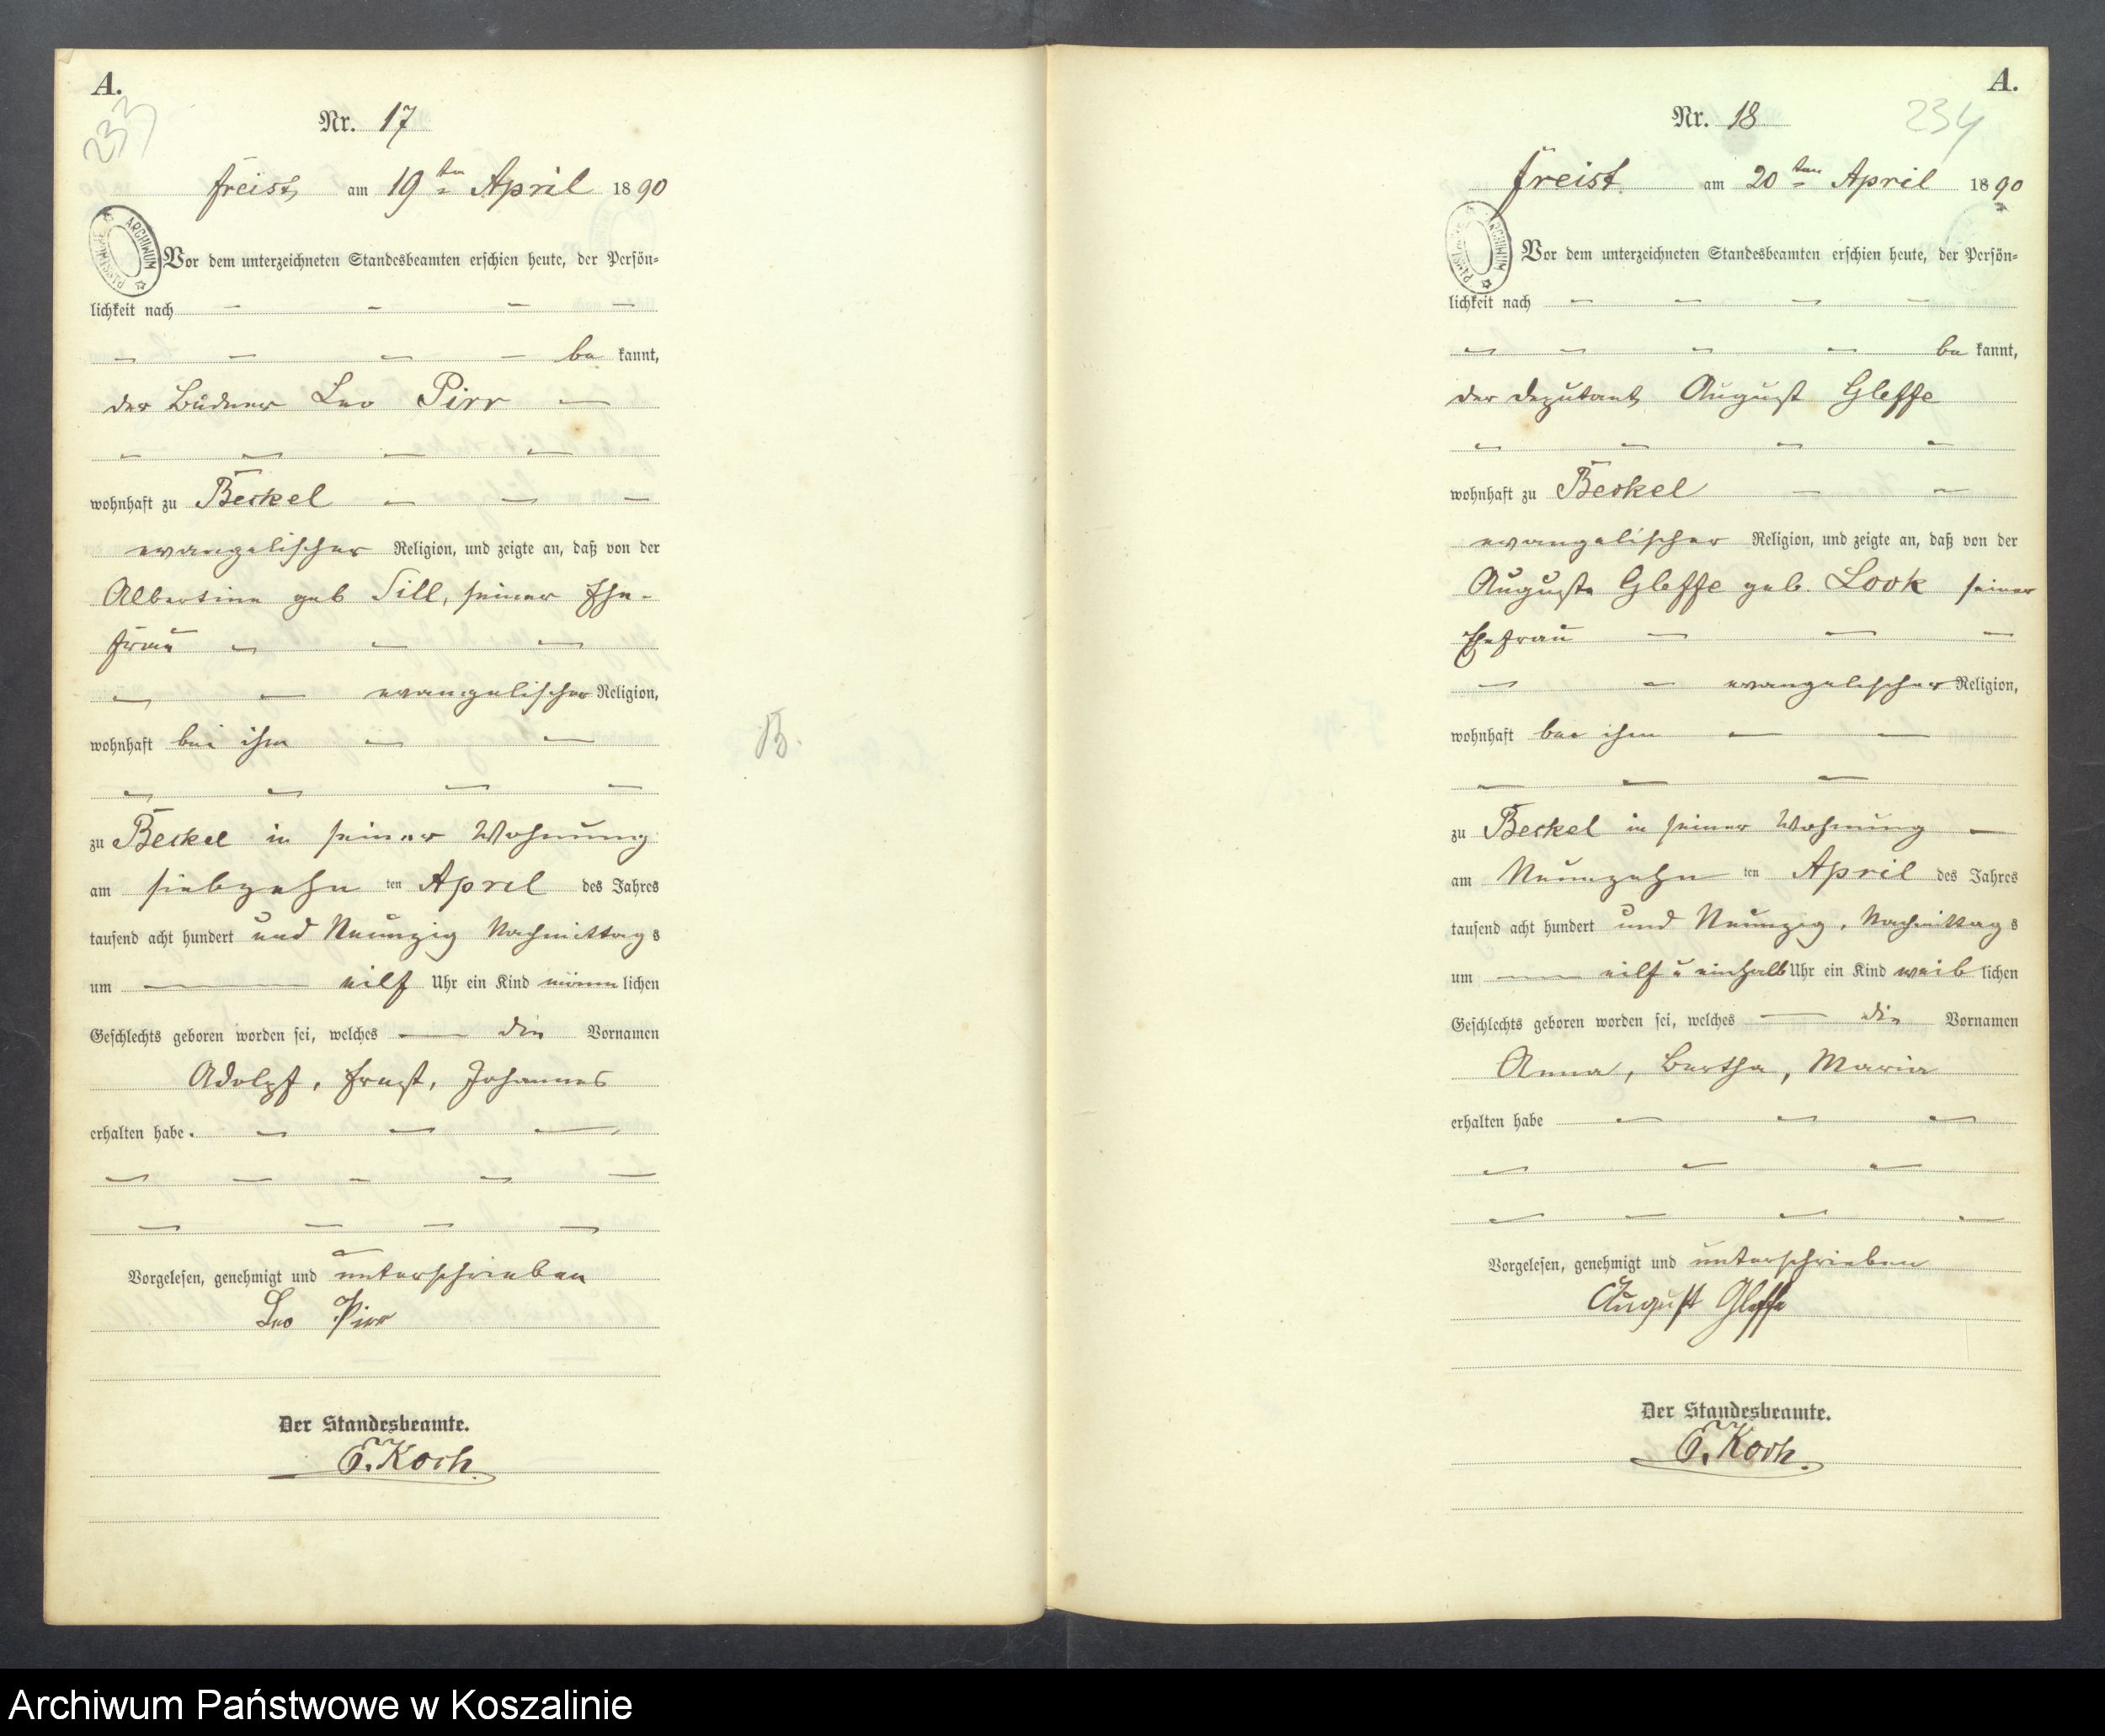 A.
233
Nr. 17
Freist, am 19ten April 1890
ARCHIWUM PAŃSTWOWE
Vor dem unterzeichneten Standesbeamten erschien heute, der Persön-
lichkeit nach
be kannt,
der Büdner Leo Pirr
wohnhaft zu Beskel
evangelischer Religion, und zeigte an, daß von der
Albertine geb Sill, seiner Ehe-
frau
evangelischer Religion,
wohnhaft bei ihm
zu Beskel in seiner Wohnung
am siebzehn ten April des Jahres
tausend acht hundert und Neunzig Nachmittag s
um eilf Uhr ein Kind männ lichen
Geschlechts geboren worden sei, welches die Vornamen
Adolph, Ernst, Johannes
erhalten habe.
Vorgelesen, genehmigt und unterschrieben
Leo Pirr
Der Standesbeamte.
E. Koch.
B.
A.
234
Nr. 18
Freist am 20ten April 1890
ARCHIWUM PAŃSTWOWE
Vor dem unterzeichneten Standesbeamten erschien heute, der Persön-
lichkeit nach
be kannt,
der Deputant August Gleffe
wohnhaft zu Beskel
evangelischer Religion, und zeigte an, daß von der
Auguste Gleffe geb. Look seiner
Ehefrau
evangelischer Religion,
wohnhaft bei ihm
zu Beskel in seiner Wohnung
am Neunzehn ten April des Jahres
tausend acht hundert und Neunzig, Nachmittag s
um eilf u einhalb Uhr ein Kind weib lichen
Geschlechts geboren worden sei, welches die Vornamen
Anna, Bertha, Maria
erhalten habe
Vorgelesen, genehmigt und unterschrieben
August Gleffe
Der Standesbeamte.
E. Koch.
Archiwum Państwowe w Koszalinie